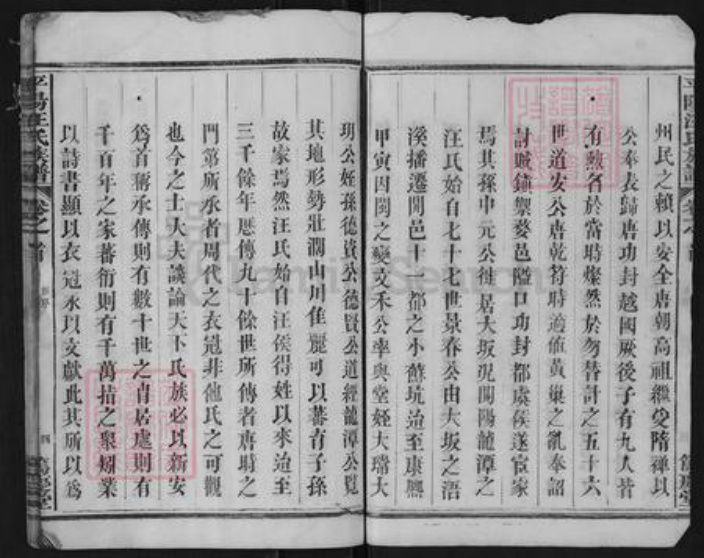 州民之賴以安全唐朝高祖繼受隋禪以
公奉表歸唐功封越國厥後子有九人皆
有勲名於當時燦然於勿替計之五十六
世道安公唐乾符時適值黃巢之亂奉詔
討賊鎮禦婺邑隘口功封都虞侯遂宦家
焉其孫中元公徙居大坂況開陽龍潭之
汪氏始自七十七世景春公由大坂之浯
溪播遷開邑十一都之小蘇坑迨至康熙
甲寅因閩之變文禾公率與堂姪大璿大
玥公姪孫德資公德賢公道經龍潭公覧
其地形勢壯濶山川隹麗可以蕃育子孫
故家焉然汪氏始自汪侯得姓以來迨至
三千餘年歷傳九十餘世所傳者唐時之
門第所承者周代之衣冠非他氏之可觀
也今之士大夫談論天下氏族必以新安
為首稱承傳則有數十世之冑居處則有
千百年之家蕃衍則有千萬指之衆矧業
以詩書顯以衣冠承以文獻此其所以為
平陽汪氏族譜
卷之首
四